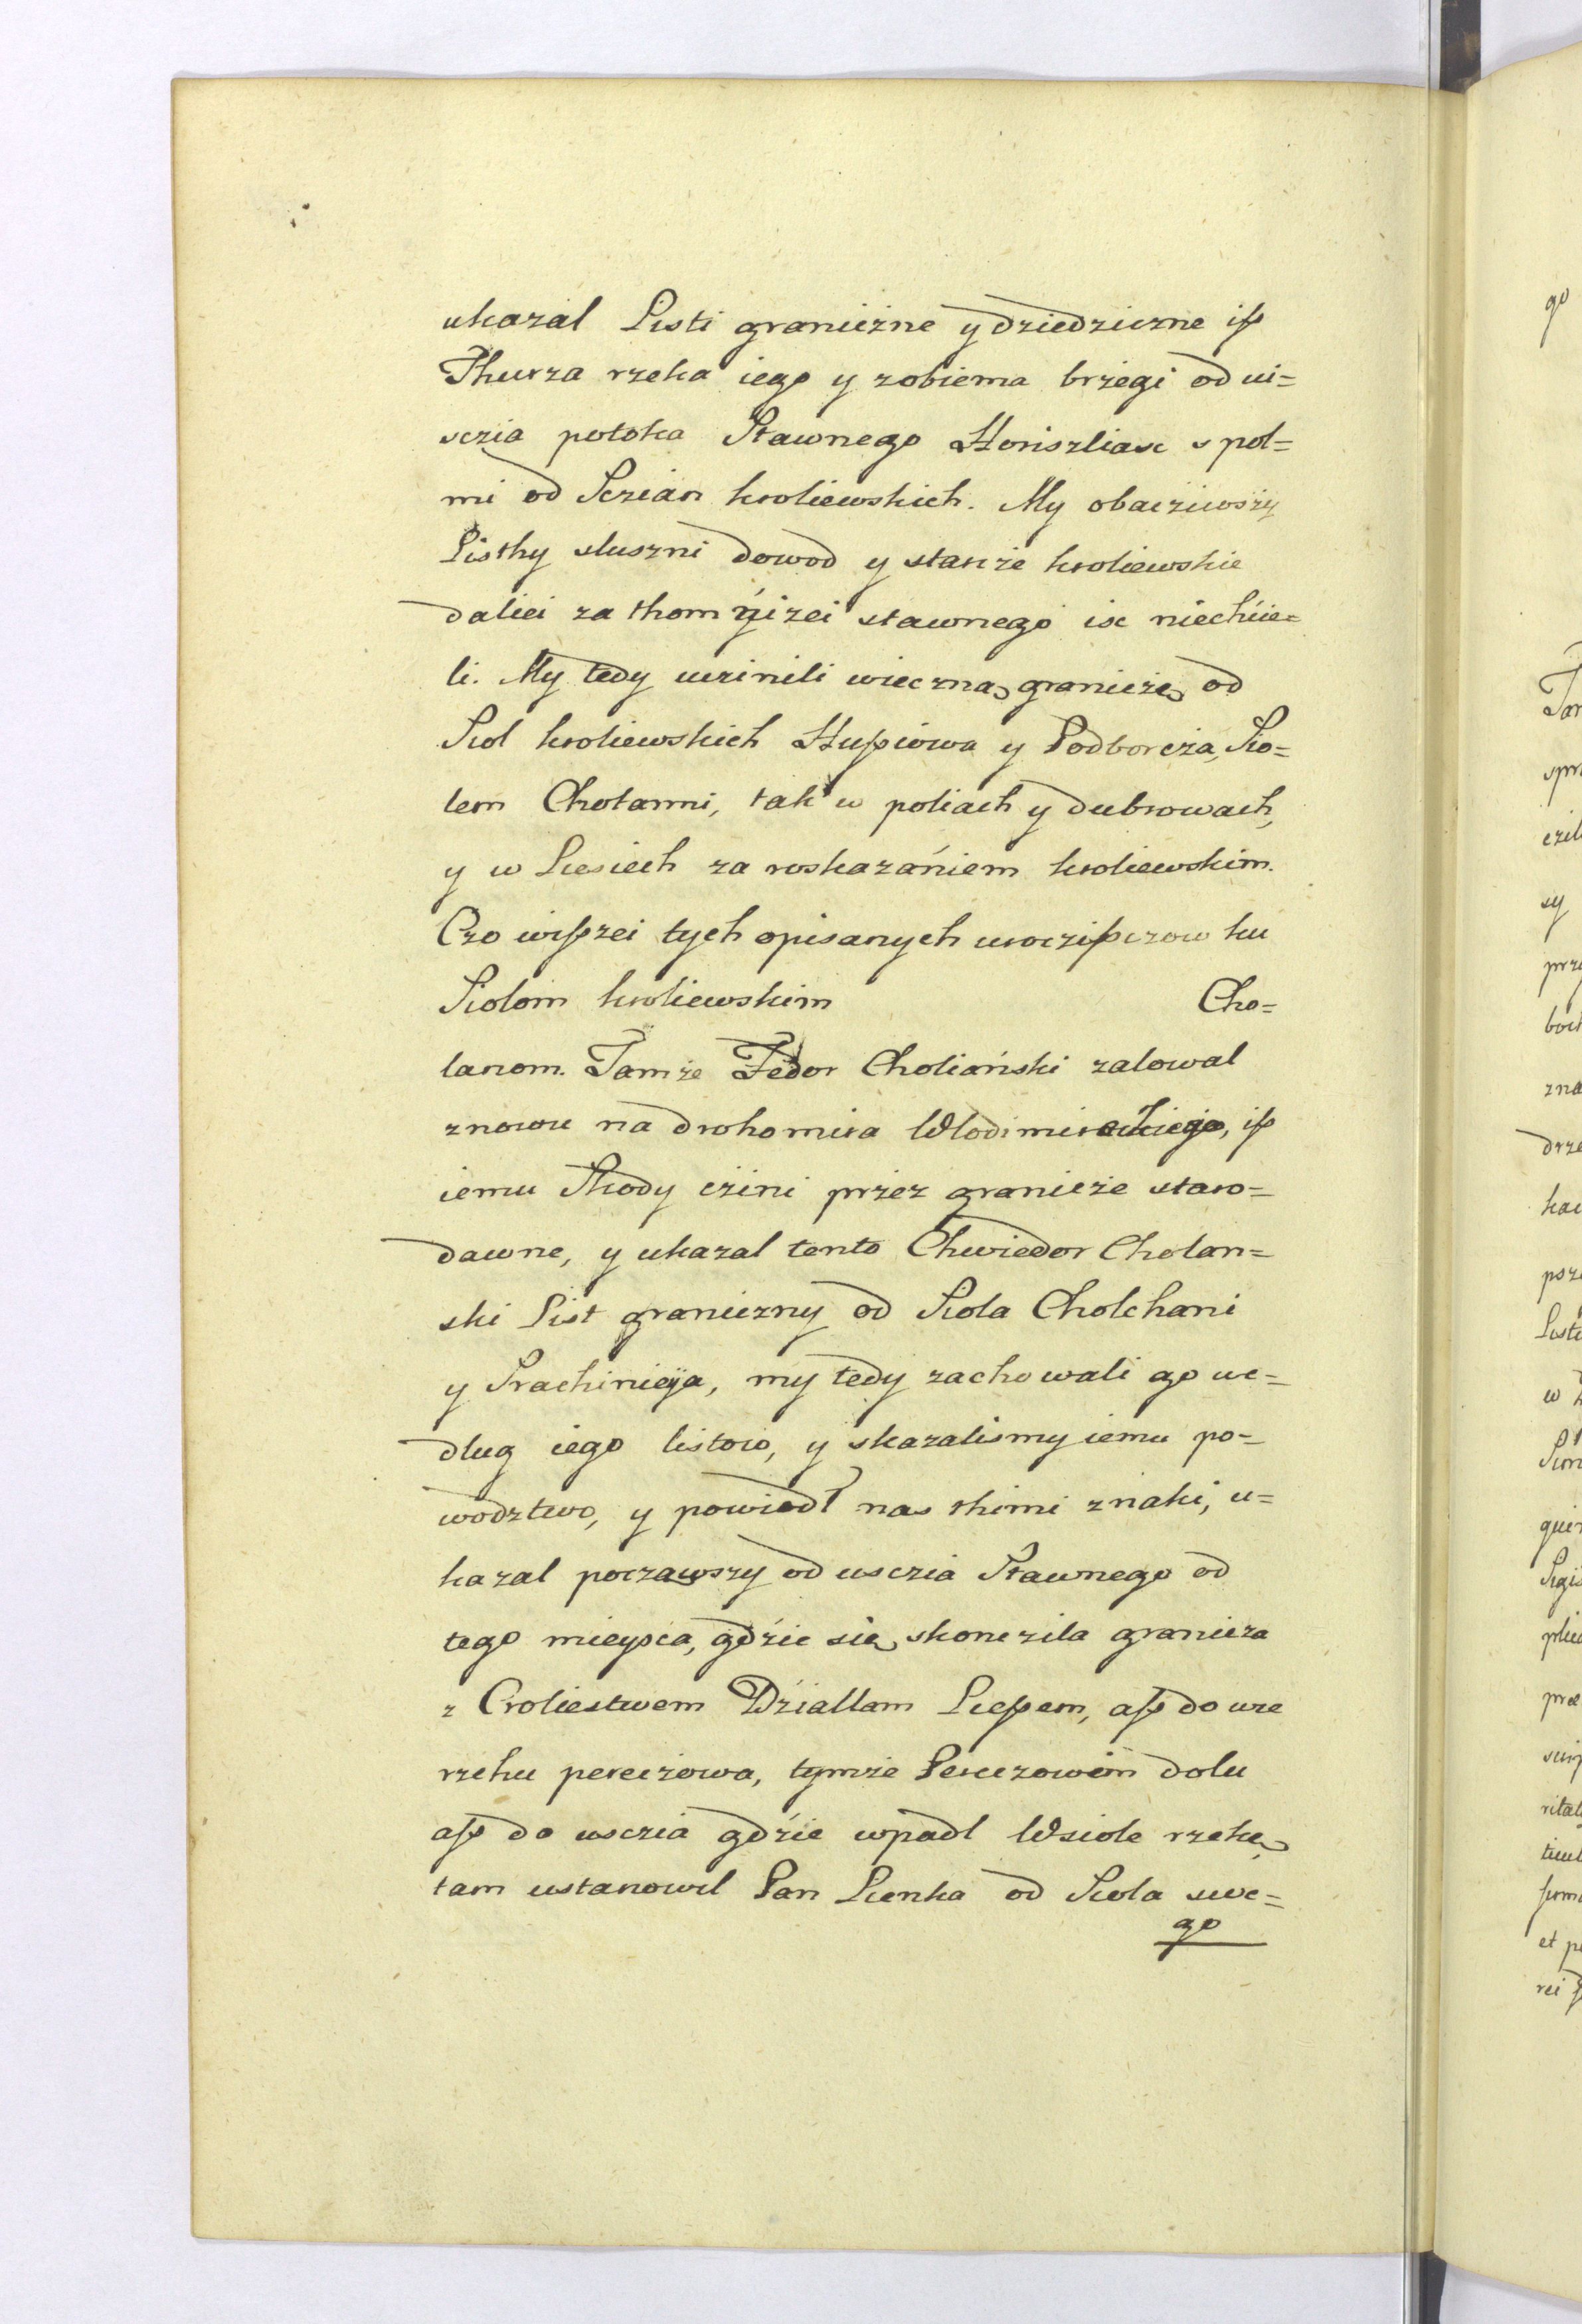 ukazal Listi granicżne y dziedziczne isz
Thurza rzeka iego y zobiema brżegi od ui=
sczia potoka Stawnego Horiszliasc s pol=
mi od Sczian kroliewskich. My obacżiwsży
Listhy sluszni dowod y starcże kroliewskie
daliei za thom yizei stawnego isc niechcie=
li. My tedy uczinili wieczną granicżę od
Siol kroliewskich Huszciowa y Podborcża, Sio=
lem Cholanmi, tak w poliach y dubrowach,
y w Liesiech za roskazaniem kroliewskim.
Czo wiszszei tych opisanych uroczisczow ku
Siolom kroliewskim Cho=
lanom. Tamże Fedor Choliański zalowal
znowu na drohomira Wlodimirskiego, isz
iemu Skody czini przez granicże staro=
dawne, y ukazal tento Chwiedor Cholan=
ski List graniczny od Siola Cholchani
y Strachinieÿa, my tedy zachowali go we=
dlug iego listow, y skazalismy iemu po=
wodztwo, y powiodl nas thimi znaki, u=
kazal począwszy od usczia Stawnego od
tego mieysca, gdzie się skonczila granicza
z Croliestwem Działlam Liessem, asz do wre
rzeku perecżowa, tymże Perecżowem dolu
asz do usczia gdzie wpadl Wsiole rzekę,
tam ustanowil Pan Lienka od Siola swe=
go